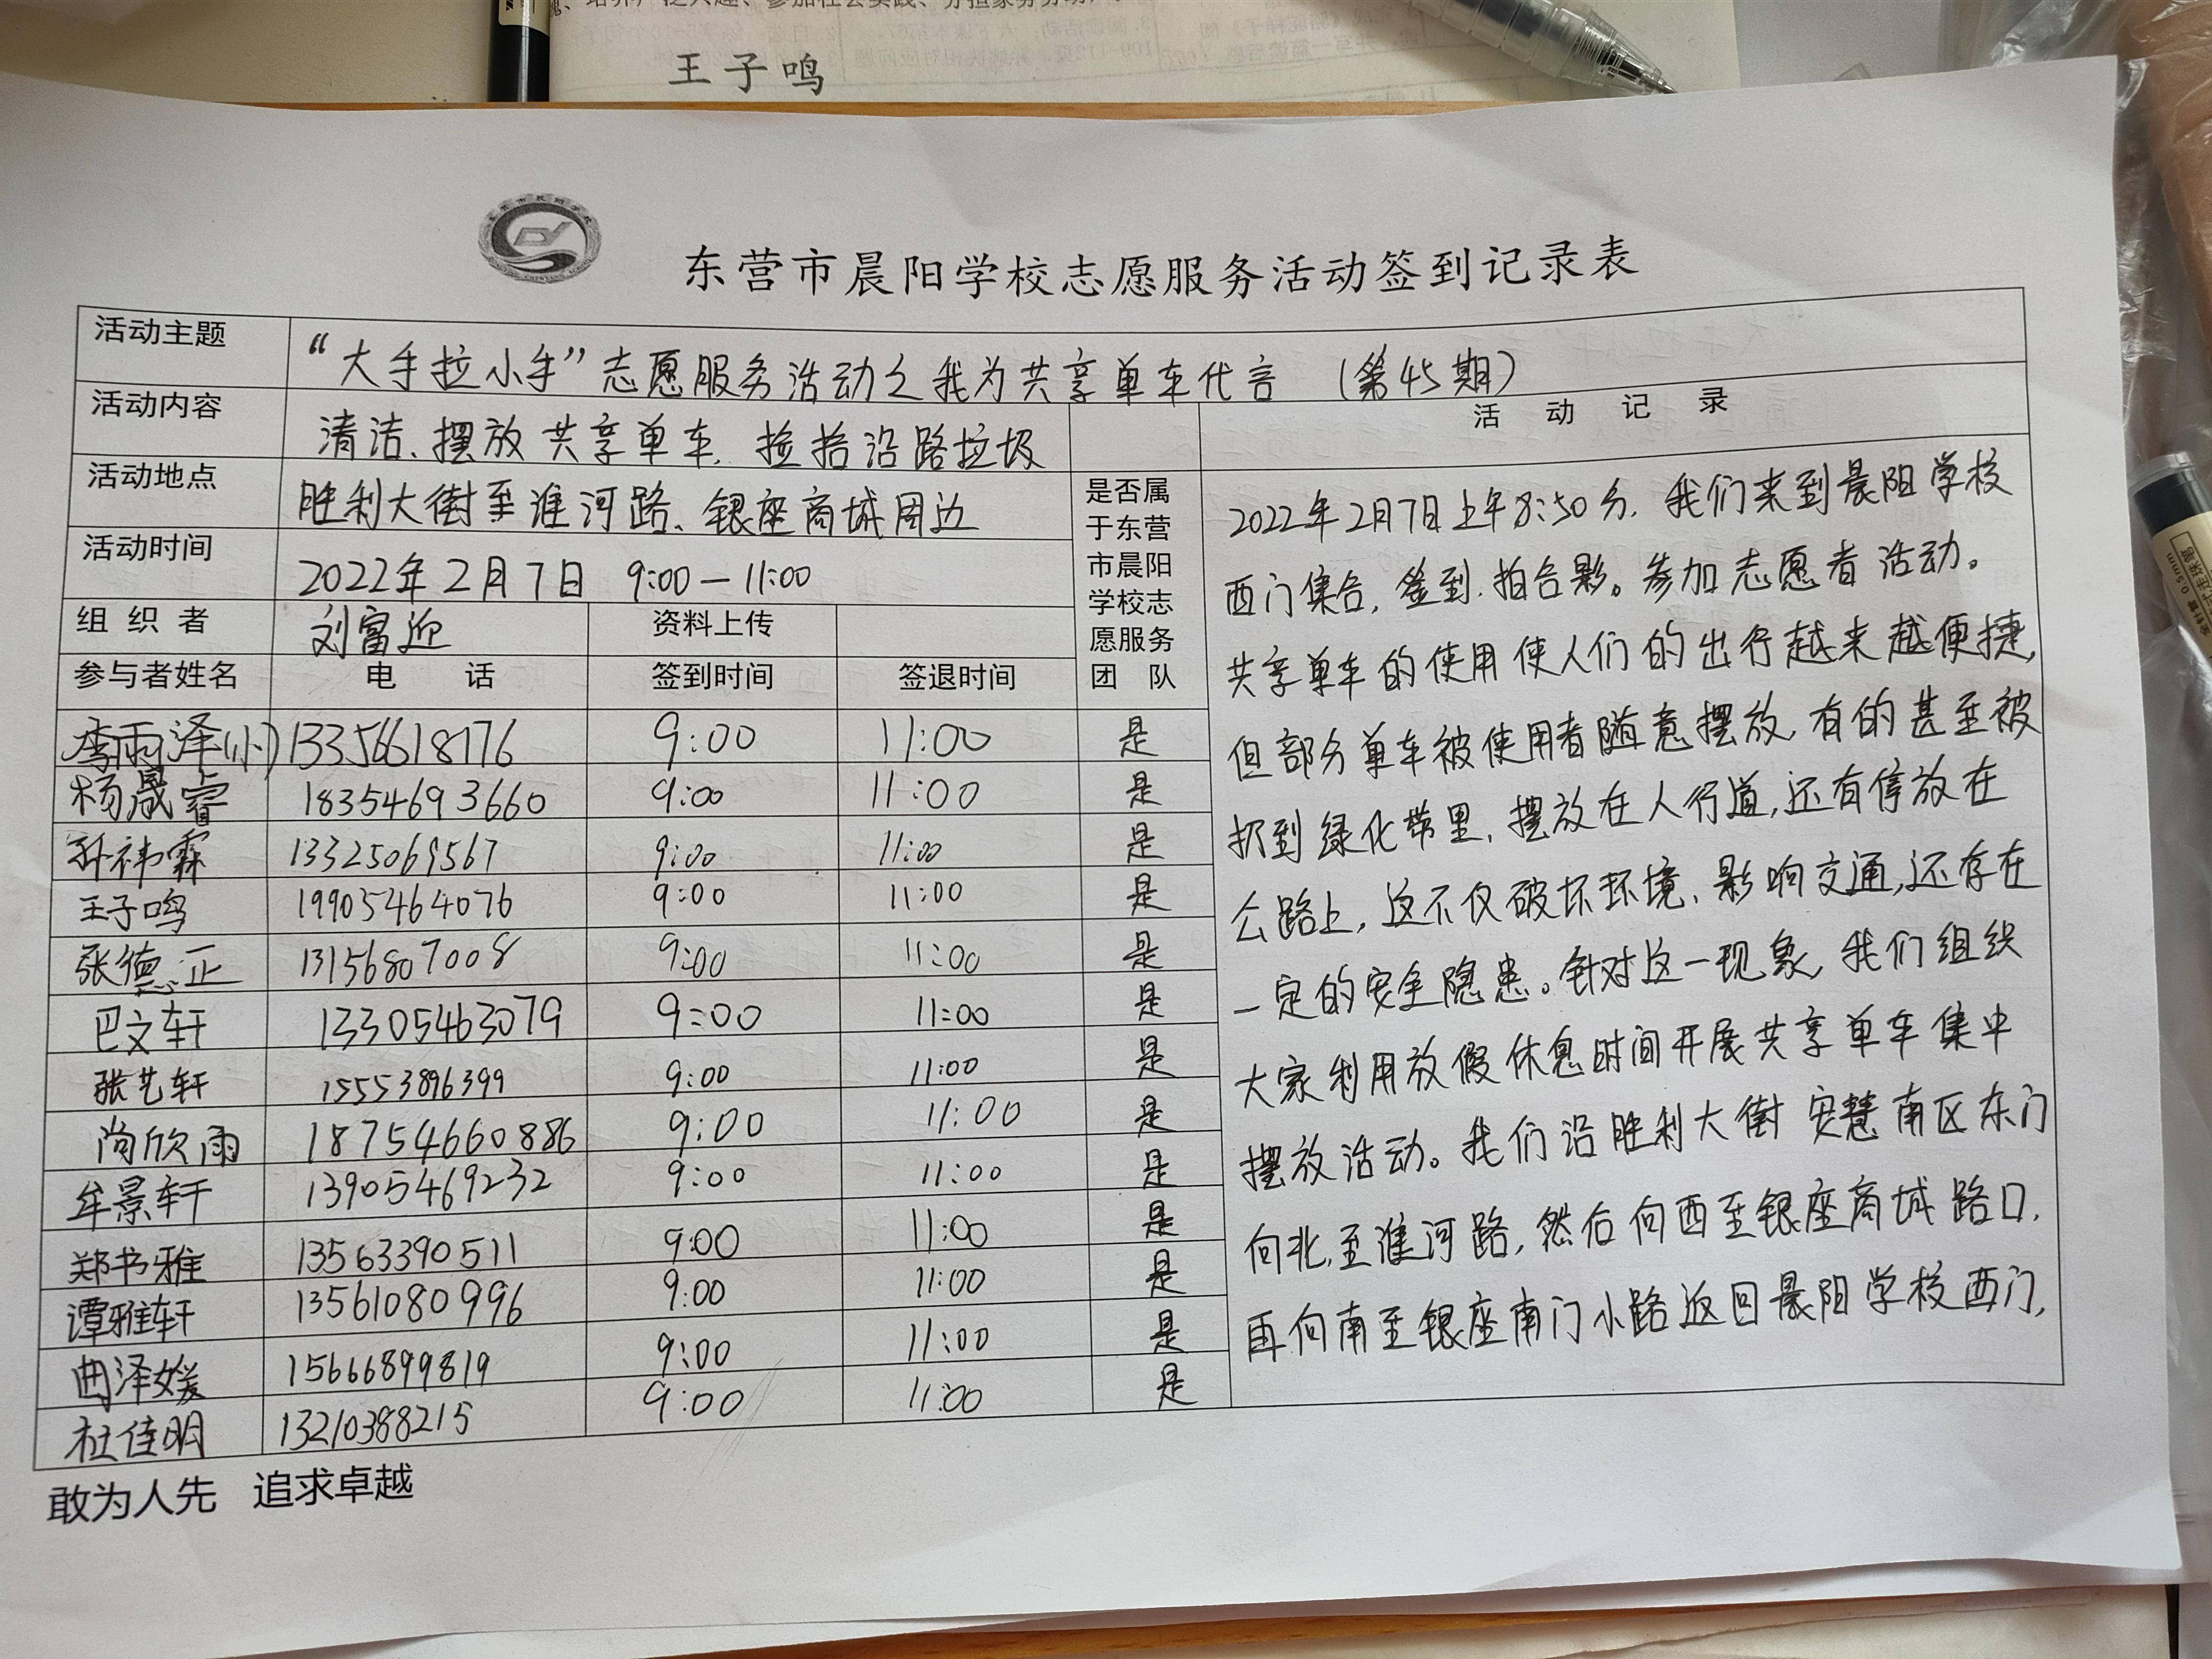 王子鸣
东营市晨阳学校志愿服务活动签到记录表
活动主题 “大手拉小手”志愿服务活动之我为共享单车代言 (第45期)
活动内容 清洁、摆放共享单车、捡拾沿路垃圾
活动记录
活动地点 胜利大街至淮河路、银座商城周边
活动时间 2022年2月7日 9:00—11:00
组织者 刘富迎 资料上传
参与者姓名 电话 签到时间 签退时间
是否属
于东营
市晨阳
学校志
愿服务
团队
李雨泽(小) 13356618176 9:00 11:00 是
杨晟睿 18354693660 9:00 11:00 是
孙祎霖 13325069567 9:00 11:00 是
王子鸣 19905464076 9:00 11:00 是
张德正 13156807008 9:00 11:00 是
巴文轩 13305463079 9:00 11:00 是
张艺轩 15553896399 9:00 11:00 是
尚欣雨 18754660886 9:00 11:00 是
牟景轩 13905469232 9:00 11:00 是
郑书雅 13563390511 9:00 11:00 是
谭雅轩 13561080996 9:00 11:00 是
曲泽媛 15666899819 9:00 11:00 是
杜佳明 13210388215 9:00 11:00 是
2022年2月7日上午8:50分,我们来到晨阳学校
西门集合,签到、拍合影。参加志愿者活动。
共享单车的使用使人们的出行越来越便捷,
但部分单车被使用者随意摆放,有的甚至被
扔到绿化带里,摆放在人行道,还有停放在
公路上,这不仅破坏环境、影响交通,还存在
一定的安全隐患。针对这一现象,我们组织
大家利用放假休息时间开展共享单车集中
摆放活动。我们沿胜利大街安慧南区东门
向北,至淮河路,然后向西至银座商城路口,
再向南至银座南门小路返回晨阳学校西门,
敢为人先 追求卓越